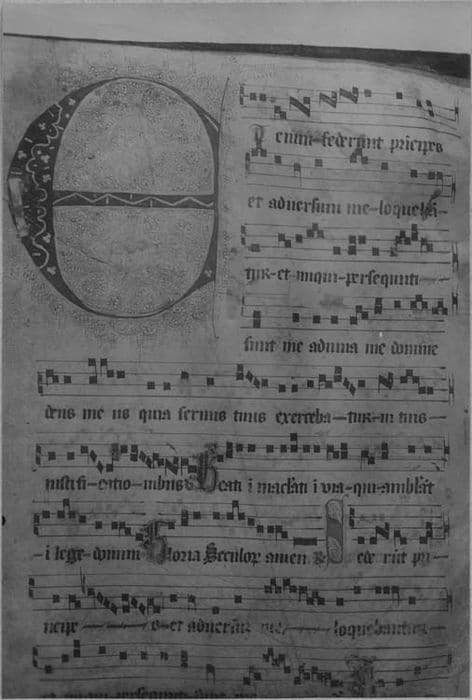 E
T enim sederunt príncipes
et adversum me-loqueba-
tur-et iniqui-persequuti
sunt me adiuua me domine
deus me us quia seruus tuus exerceba-tur-in tuis-
iustifi-catio-nibus Beati i maclati i via-qui-amblãt
-i lege-domini Gloria Seculor amen Sede rũt pri-
ncipe-s-et aduersũ me-loquebantur-
et iniqui persequuti sunt me